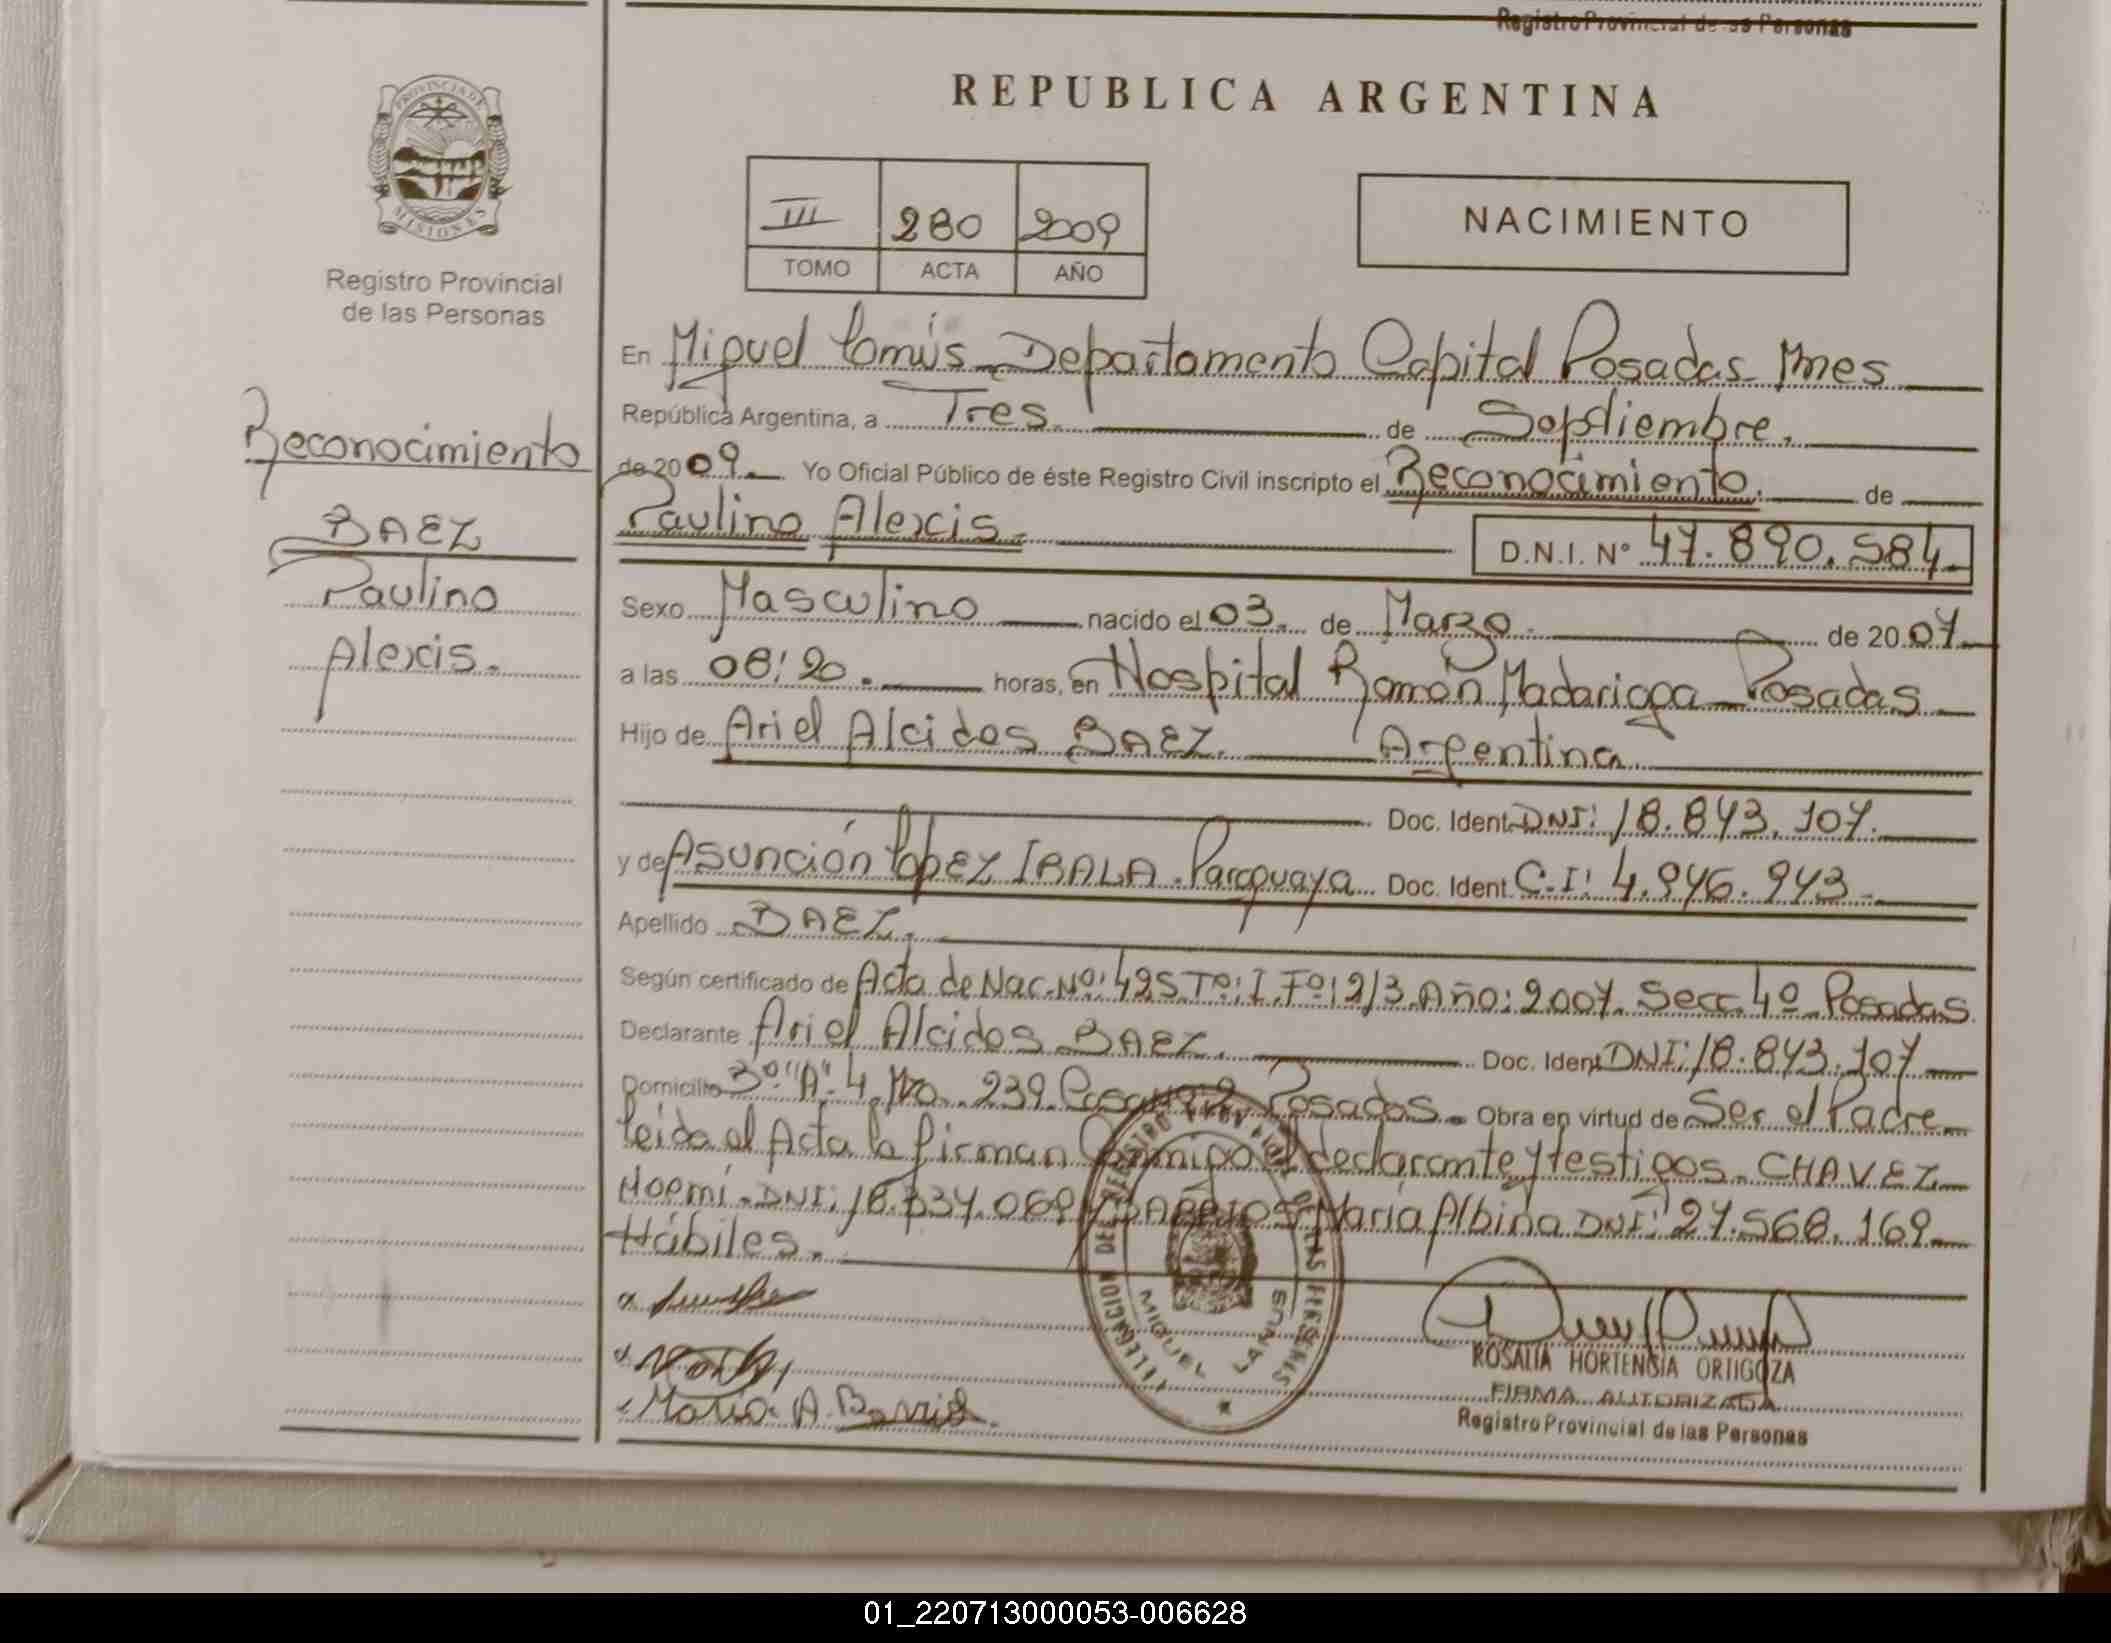 Registro Provincial de las Personas
REPUBLICA ARGENTINA
PROVINCIA DE
MISIONES
Registro Provincial
de las Personas
III 280 2009
TOMO ACTA AÑO
NACIMIENTO
Reconocimiento
BAEZ
Paulino
Alexis.
En Miguel Lanús - Departamento Capital Posadas Mnes
República Argentina, a Tres. de Septiembre.
de 2009. Yo Oficial Público de éste Registro Civil inscripto el Reconocimiento. de
Paulino Alexis. D.N.I. Nº 47.890.584
Sexo Masculino nacido el 03 de Marzo. de 2007.
a las 08:20. horas, en Hospital Ramón Madariaga - Posadas
Hijo de Ariel Alcides BAEZ. Argentina.
Doc. Ident. DNI: 18.843.107.
y de Asunción López IBALA. Paraguaya Doc. Ident. C.I: 4.946.943
Apellido BAEZ.
Según certificado de Acta de Nac. Nº: 425 Tº: I. Fº: 213. Año: 2007. Secc. 4º Posadas
Declarante Ariel Alcides BAEZ. Doc. Ident DNI: 18.843.107
Domicilio 239. Posadas. Obra en virtud de Ser el Padre
leida el Acta la firman Conmigo el declarante y testigos. CHAVEZ
Noemí. DNI: 18. .069 y BARRIOS María Albina DNI: 27.568.169
Hábiles.
DELEGACION DEL REGISTRO PROVINCIAL DE LAS PERSONAS
MIGUEL LANUS
María A. Barrios.
ROSALIA HORTENSIA ORTIGOZA
FIRMA AUTORIZADA
Registro Provincial de las Personas
01_220713000053-006628